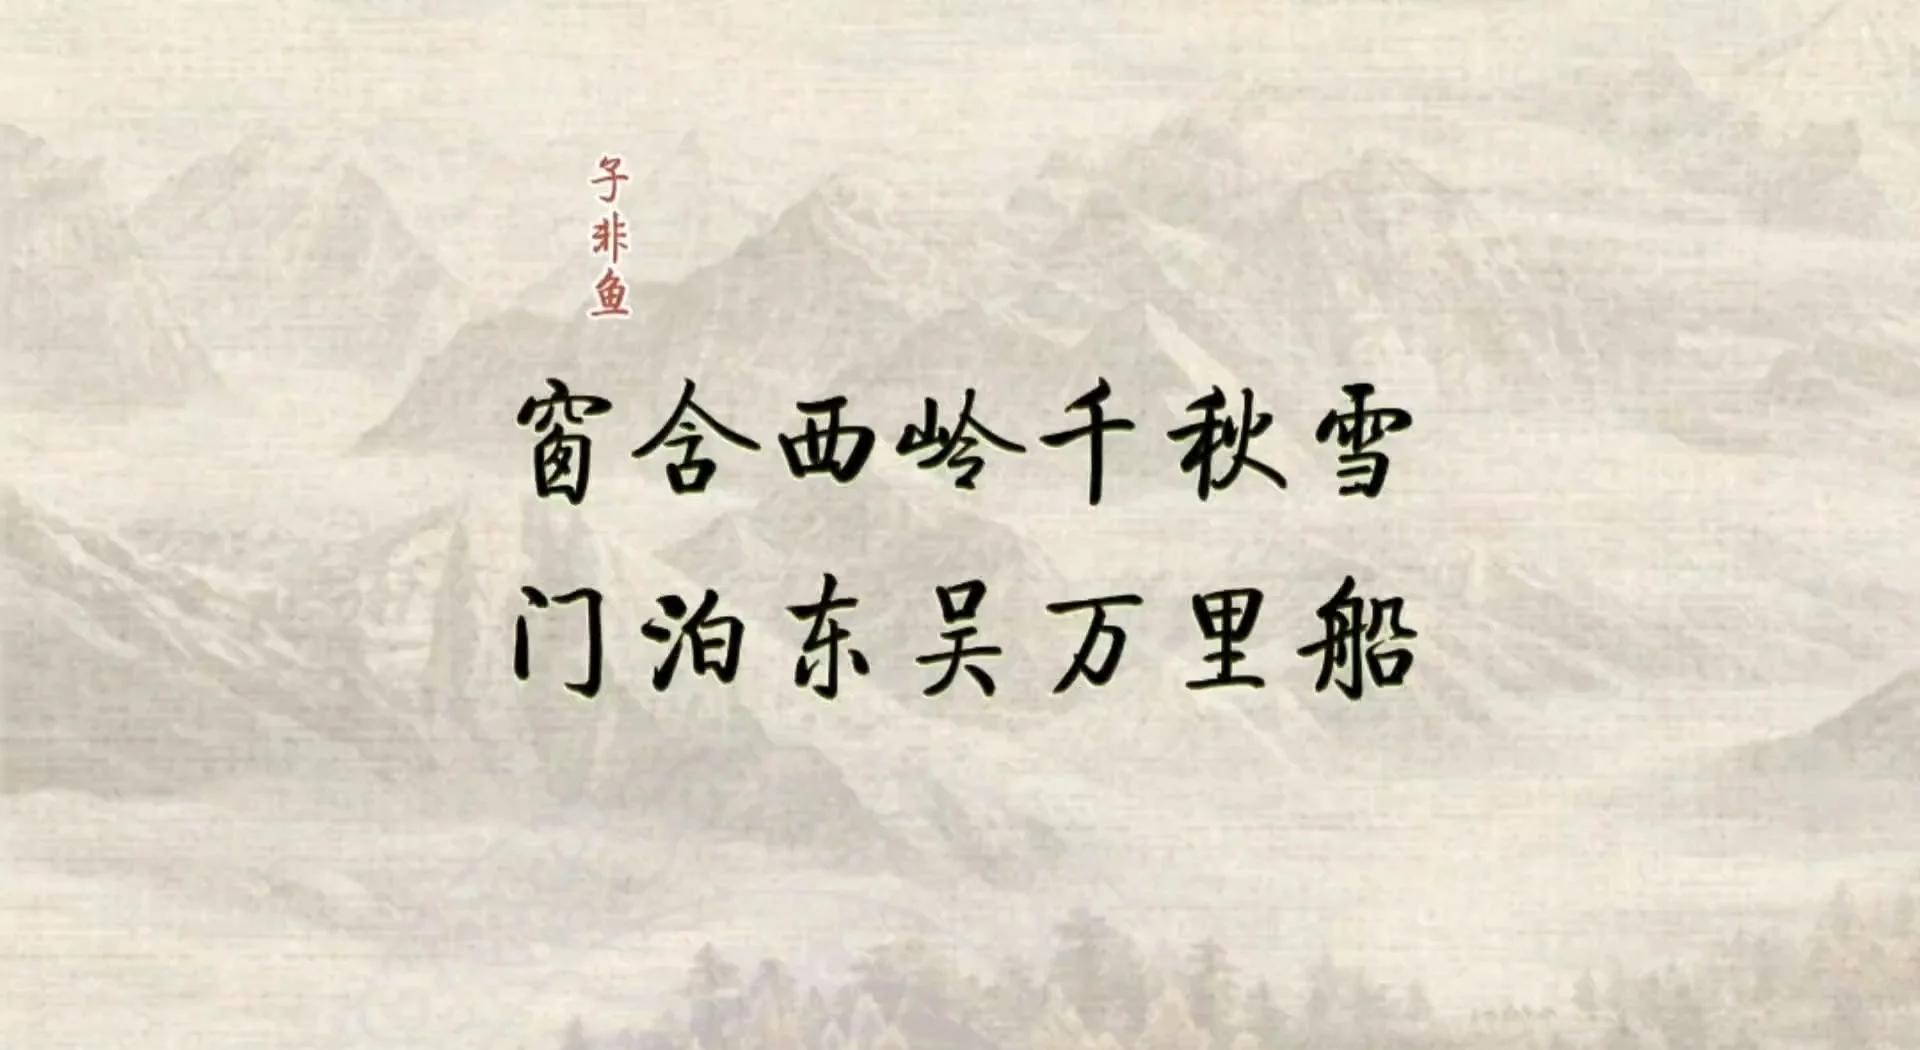 子非鱼
窗含西岭千秋雪
门泊东吴万里船